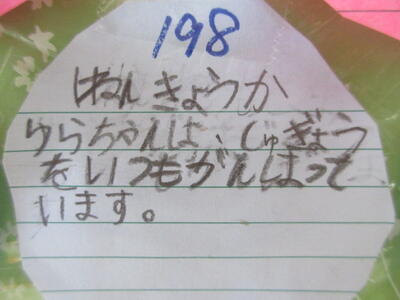 198
ねんきょうか
ゆらちゃんは、じゅぎょう
をいつもがんばって
います。